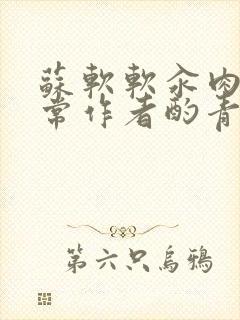 蘇軟軟汆肉
常作者酌青
第六只烏鴉